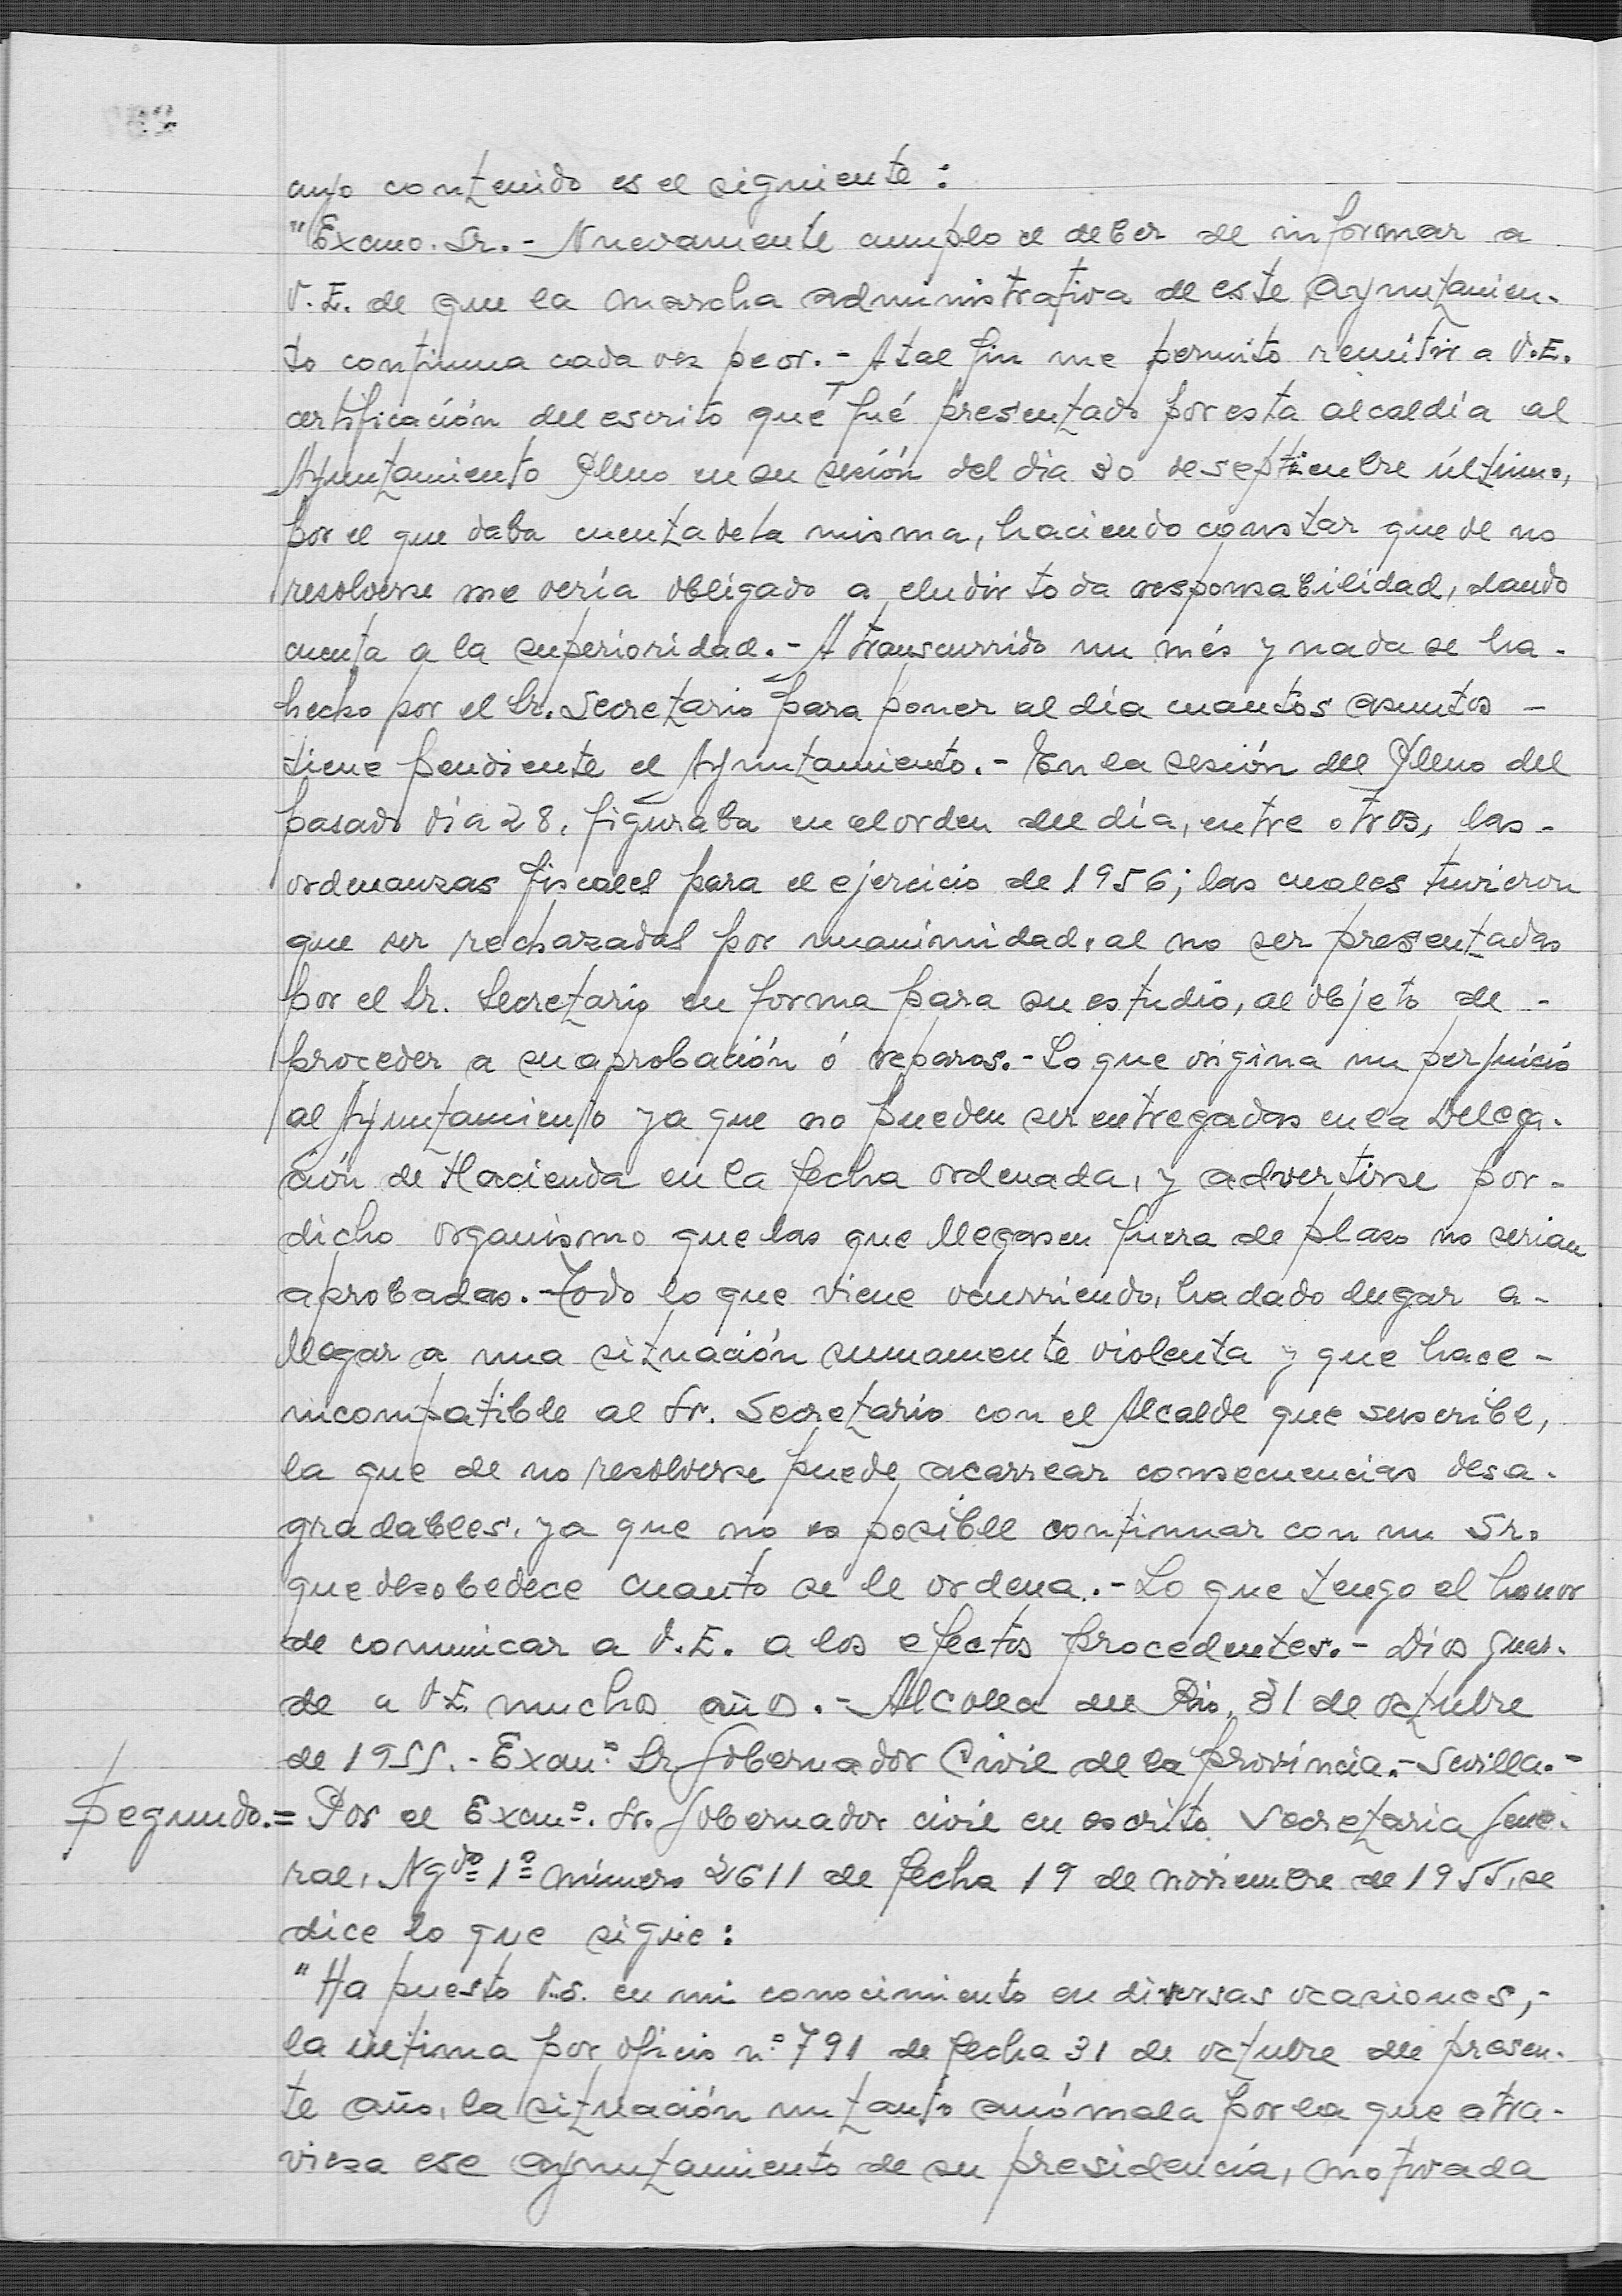 cuyo contenido es el siguiente:
"Excmo. Sr.- Nuevamente cumplo el deber de informar a
V.E. de que la marcha administrativa de este Ayuntamien-
to continua cada vez peor.- A tal fin me permito remitir a V.E.
certificación del escrito qué fué presentado por esta alcaldía al
Ayuntamiento Pleno en su sesión del dia 30 de septiembre último,
por el que daba cuenta de la misma, haciendo constar que de no
resolverse me vería obligado a eludir toda responsabilidad, dando
cuenta a la superioridad.- A transcurrido un més y nada se ha-
hecho por el Sr. Secretario para poner al día cuantos asuntos -
tiene pendiente el Ayuntamiento.- En la sesión del Pleno del
pasado día 28, figuraba en el orden del día, entre otros, las-
ordenanzas fiscales para el ejercicio de 1956; las cuales tuvieron
que ser rechazadas por unanimidad, al no ser presentadas
por el Sr. Secretario en forma para su estudio, al objeto de -
proceder a su aprobación ó reparos.- Lo que origina un perjuicio
al Ayuntamiento ya que no pueden ser entregadas en la Delega-
ción de Hacienda en la fecha ordenada, y advertirse por-
dicho organismo que las que llegasen fuera de plazo no serian
aprobadas.- Todo lo que viene ocurriendo, ha dado lugar a-
llegar a una situación sumamente violenta y que hace-
incompatible al Sr. Secretario con el Alcalde que suscribe,
la que de no resolverse puede acarrear consecuencias desa-
gradables, ya que no es posible continuar con un Sr.
que desobedece cuanto se le ordena.- Lo que tengo el honor
de comunicar a V.E. a los efectos procedentes.- Dios guar-
de a V.E. muchos años.- Alcolea del Rio, 31 de octubre
de 1955.- Excmº Sr Gobernador Civil de la provincia.- Sevilla.-
Segundo.= Por el Excmº. Sr. Gobernador civil en escrito Secretaria Gene-
ral, Ngdº 1º número 2611 de fecha 19 de noviembre de 1955, se
dice lo que sigue:
"Ha puesto V.S. en mi conocimiento en diversas ocasiones,-
la última por oficio nº 791 de fecha 31 de octubre del presen-
te año, la situación un tanto anómala por la que atra-
viesa ese ayuntamiento de su presidencia, motivada